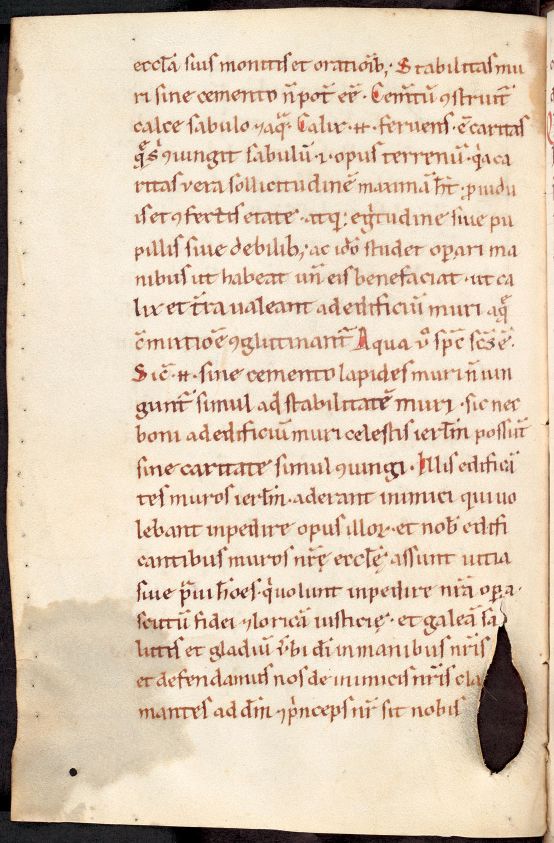 eccl̄a suis monitis et oratioib; Stabilitas mu
ri sine cemento n̄ pot̄ eē. Cem̄tū ꝯstruit᷑
calce sabulo ⁊ aq̄. Calix .n̄. feruens .ē caritas
q̄ s̄ ꝯiungit sabulū .i. opus terrenū. q̇a ca
ritas uera sollicitudinē maximā h̄t. ꝓuidu
is et ꝯfectis etate. atq; egͥtudine siue pu
pillis siue debilib; ac idō studet opari ma
nibus ut habeat un̄ eis benefaciat. ut ca
lix et t̄ra ualeant ad edificiū muri aq̄
c̄mixtiōe ꝯglutinant᷑ Aqua u̅ sp̄c sc̄s ē.
Sic̄ .n̄. sine cemento lapides muri n̄ iun
gunt᷑ simul ad stabilitatē muri. sic nec
boni ad edificiū muri celestis ierl̄m possūt
sine caritate simul ꝯiungi. Illis edificā
tes muros ierl̄m. aderant inimici qui uo
lebant inpedire opus illor. et nob̄ edifi
cantibus muros nr̄ę eccl̄ę assunt uitia
siue p̄ui h̄oes. q̇ uolunt inpedire nr̄a opa.
scutū fidei ⁊ loricā iusticię. et galeā sa
lutis et gladiū u̅bi dī in manibus nr̄is
et defendamus nos de inimicis nr̄is cla
mantes ad dm̄ ⁊ p̄nceps nr̄ sit nobis